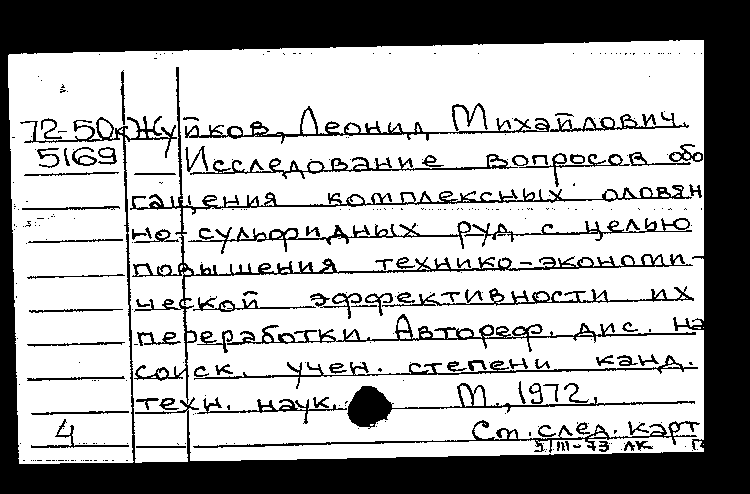 72-50к Жуйков, Леонид Михайлович.
5169 Исследование вопросов обо
гащения комплексных оловян
но-сульфидных руд с целью
повышения технико-экономи-
ческой эффективности их
переработки. Автореф. дис. на
соиск. учен. степени канд.
техн. наук. М., 1972.
4 Ст. след. карт
5/III-73 ЛК